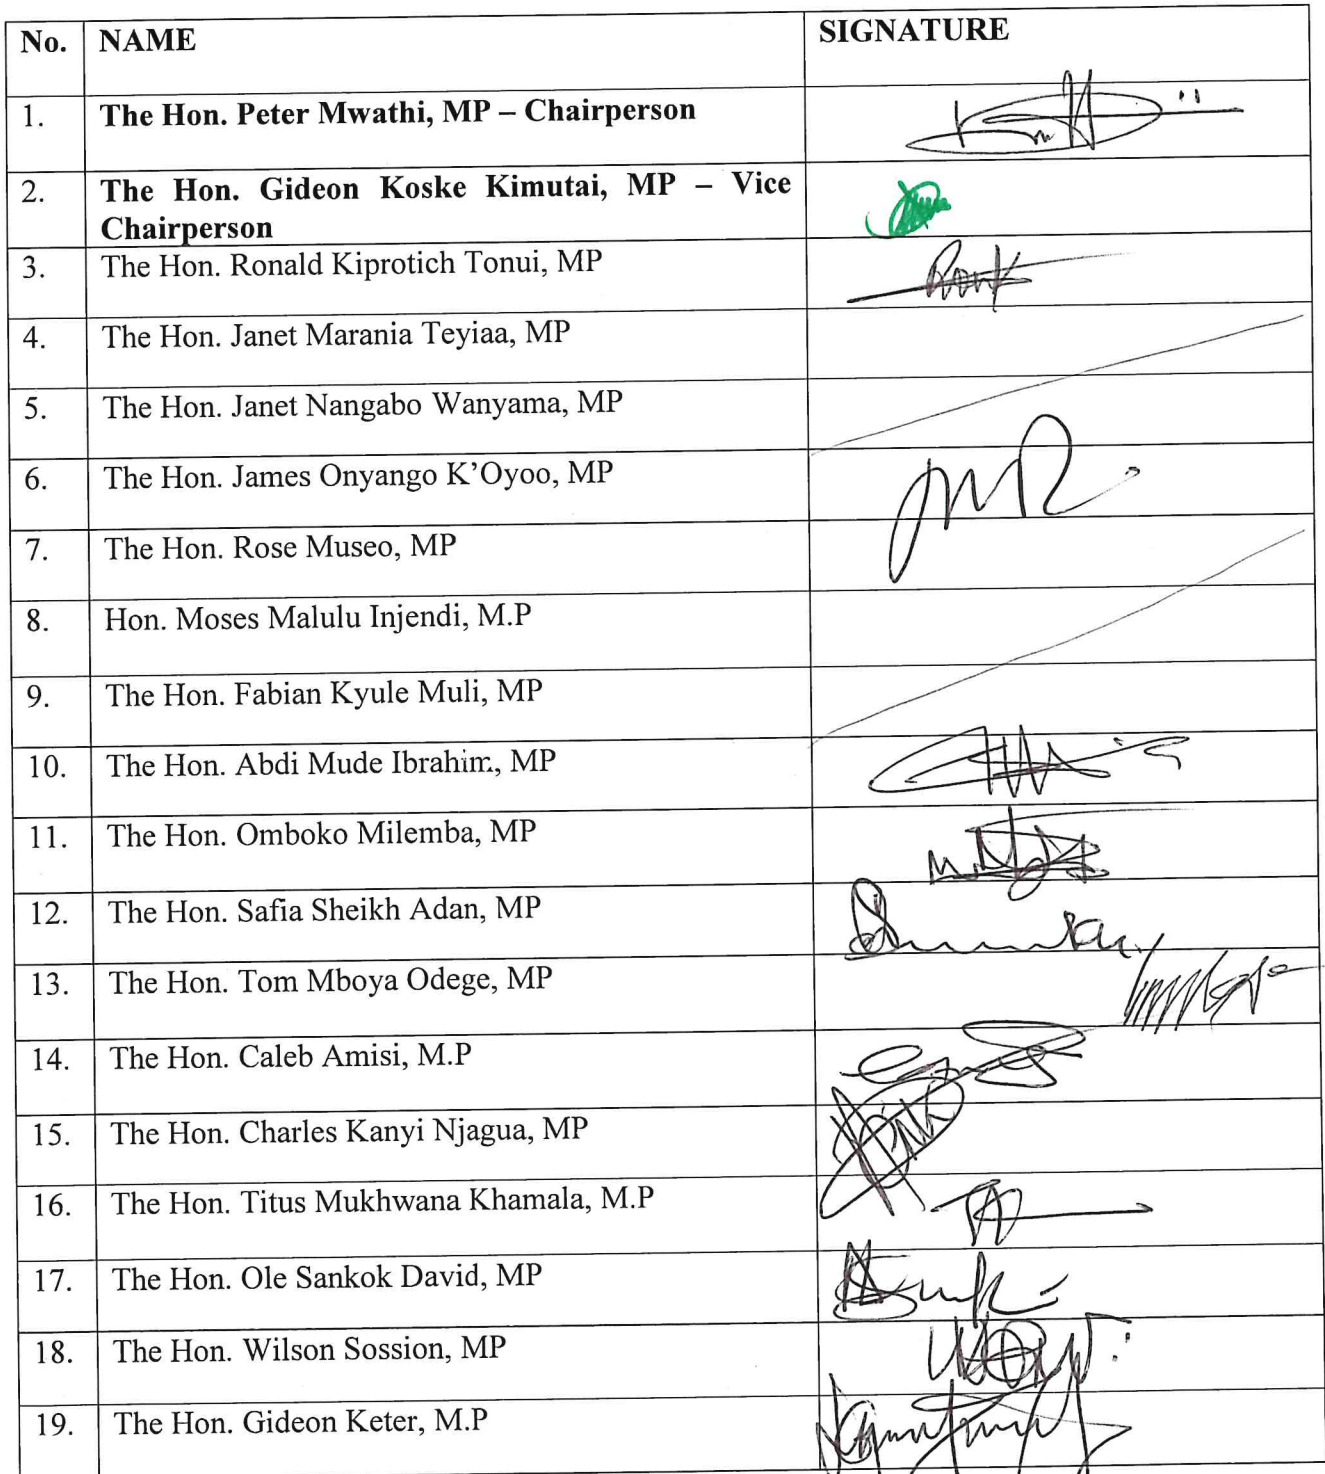 No. NAME SIGNATURE
1. The Hon. Peter Mwathi, MP – Chairperson
2. The Hon. Gideon Koske Kimutai, MP – Vice
Chairperson
3. The Hon. Ronald Kiprotich Tonui, MP
4. The Hon. Janet Marania Teyiaa, MP
5. The Hon. Janet Nangabo Wanyama, MP
6. The Hon. James Onyango K'Oyoo, MP
7. The Hon. Rose Museo, MP
8. Hon. Moses Malulu Injendi, M.P
9. The Hon. Fabian Kyule Muli, MP
10. The Hon. Abdi Mude Ibrahim, MP
11. The Hon. Omboko Milemba, MP
12. The Hon. Safia Sheikh Adan, MP
13. The Hon. Tom Mboya Odege, MP
14. The Hon. Caleb Amisi, M.P
15. The Hon. Charles Kanyi Njagua, MP
16. The Hon. Titus Mukhwana Khamala, M.P
17. The Hon. Ole Sankok David, MP
18. The Hon. Wilson Sossion, MP
19. The Hon. Gideon Keter, M.P